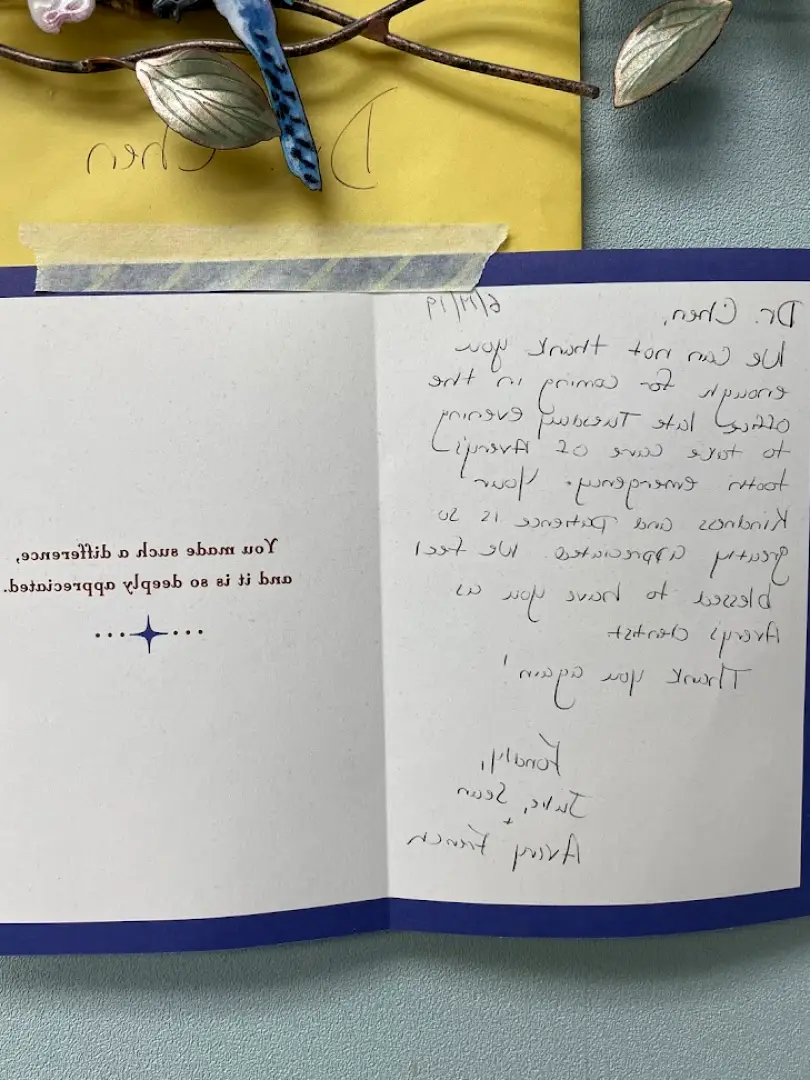 Dr. Chen
Dr. Chen,
We can not thank you
enough for coming in the
office late Tuesday evening
to take care of Avery's
tooth emergency. Your
kindness and patience is so
greatly appreciated. We feel
blessed to have you as
Avery's dentist
Thank you again!
Fondly,
Julie, Sean
+
Avery French
You made such a difference,
and it is so deeply appreciated.